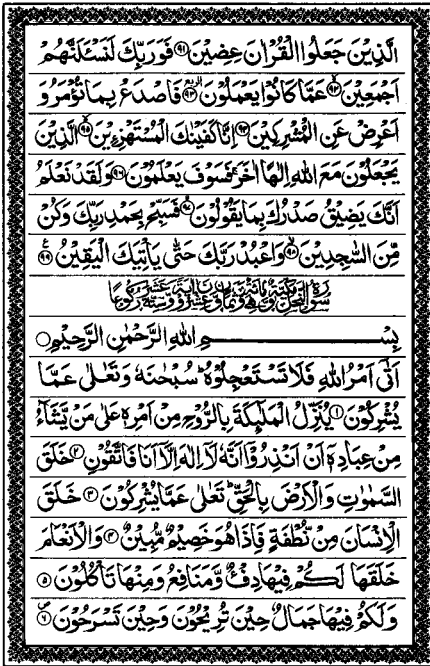 الَّذِیْنَ جَعَلُوا الْقُرْاٰنَ عِضِیْنَ ﴿۹۱﴾ فَوَرَبِّكَ لَنَسْـَٔلَنَّهُمْ
اَجْمَعِیْنَ ﴿۹۲﴾ عَمَّا كَانُوْا یَعْمَلُوْنَ ﴿۹۳﴾ فَاصْدَعْ بِمَا تُؤْمَرُ وَ
اَعْرِضْ عَنِ الْمُشْرِكِیْنَ ﴿۹۴﴾ اِنَّا كَفَیْنٰكَ الْمُسْتَهْزِءِیْنَ ﴿۹۵﴾ الَّذِیْنَ
یَجْعَلُوْنَ مَعَ اللّٰهِ اِلٰهًا اٰخَرَ ۚ فَسَوْفَ یَعْلَمُوْنَ ﴿۹۶﴾ وَلَقَدْ نَعْلَمُ
اَنَّكَ یَضِیْقُ صَدْرُكَ بِمَا یَقُوْلُوْنَ ﴿۹۷﴾ فَسَبِّحْ بِحَمْدِ رَبِّكَ وَكُنْ
مِّنَ السّٰجِدِیْنَ ﴿۹۸﴾ وَاعْبُدْ رَبَّكَ حَتّٰی یَاْتِیَكَ الْیَقِیْنُ ﴿۹۹﴾
سورة النحل مكية وهي مائة وثمان وعشرون اية وستة عشر ركوعا
بِسْمِ اللّٰهِ الرَّحْمٰنِ الرَّحِیْمِ
اَتٰۤی اَمْرُ اللّٰهِ فَلَا تَسْتَعْجِلُوْهُ ؕ سُبْحٰنَهٗ وَتَعٰلٰی عَمَّا
یُشْرِكُوْنَ ﴿۱﴾ یُنَزِّلُ الْمَلٰٓئِكَةَ بِالرُّوْحِ مِنْ اَمْرِهٖ عَلٰی مَنْ یَّشَآءُ
مِنْ عِبَادِهٖۤ اَنْ اَنْذِرُوْۤا اَنَّهٗ لَاۤ اِلٰهَ اِلَّاۤ اَنَا فَاتَّقُوْنِ ﴿۲﴾ خَلَقَ
السَّمٰوٰتِ وَالْاَرْضَ بِالْحَقِّ ؕ تَعٰلٰی عَمَّا یُشْرِكُوْنَ ﴿۳﴾ خَلَقَ
الْاِنْسَانَ مِنْ نُّطْفَةٍ فَاِذَا هُوَ خَصِیْمٌ مُّبِیْنٌ ﴿۴﴾ وَالْاَنْعَامَ
خَلَقَهَا ۚ لَكُمْ فِیْهَا دِفْءٌ وَّمَنَافِعُ وَمِنْهَا تَاْكُلُوْنَ ﴿۵﴾
وَلَكُمْ فِیْهَا جَمَالٌ حِیْنَ تُرِیْحُوْنَ وَحِیْنَ تَسْرَحُوْنَ ﴿۶﴾